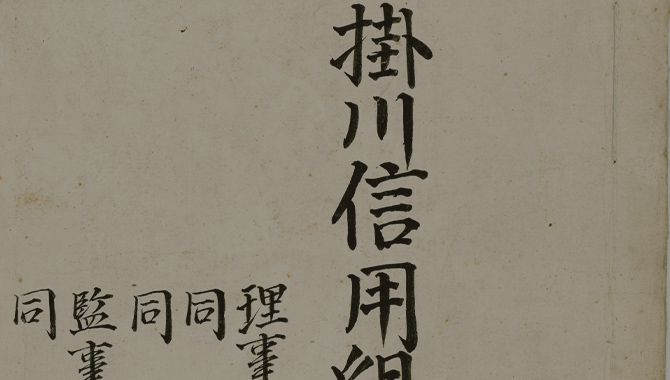 掛川信用組
理事
同
同
監事
同